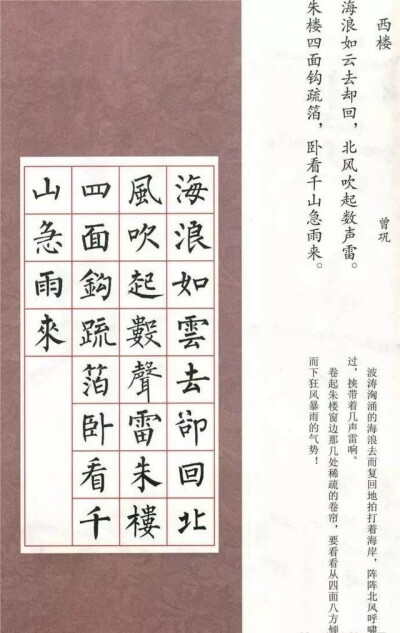 西楼 曾巩
海浪如云去却回，北风吹起数声雷。
朱楼四面钩疏箔，卧看千山急雨来。
波涛汹涌的海浪去而复回地拍打着海岸，阵阵北风呼啸
过，挟带着几声雷响。
卷起朱楼窗边那几处稀疏的卷帘，要看看从四面八方
而下狂风暴雨的气势！
海浪如雲去卻回北
風吹起數聲雷朱樓
四面鈎疏箔卧看千
山急雨來